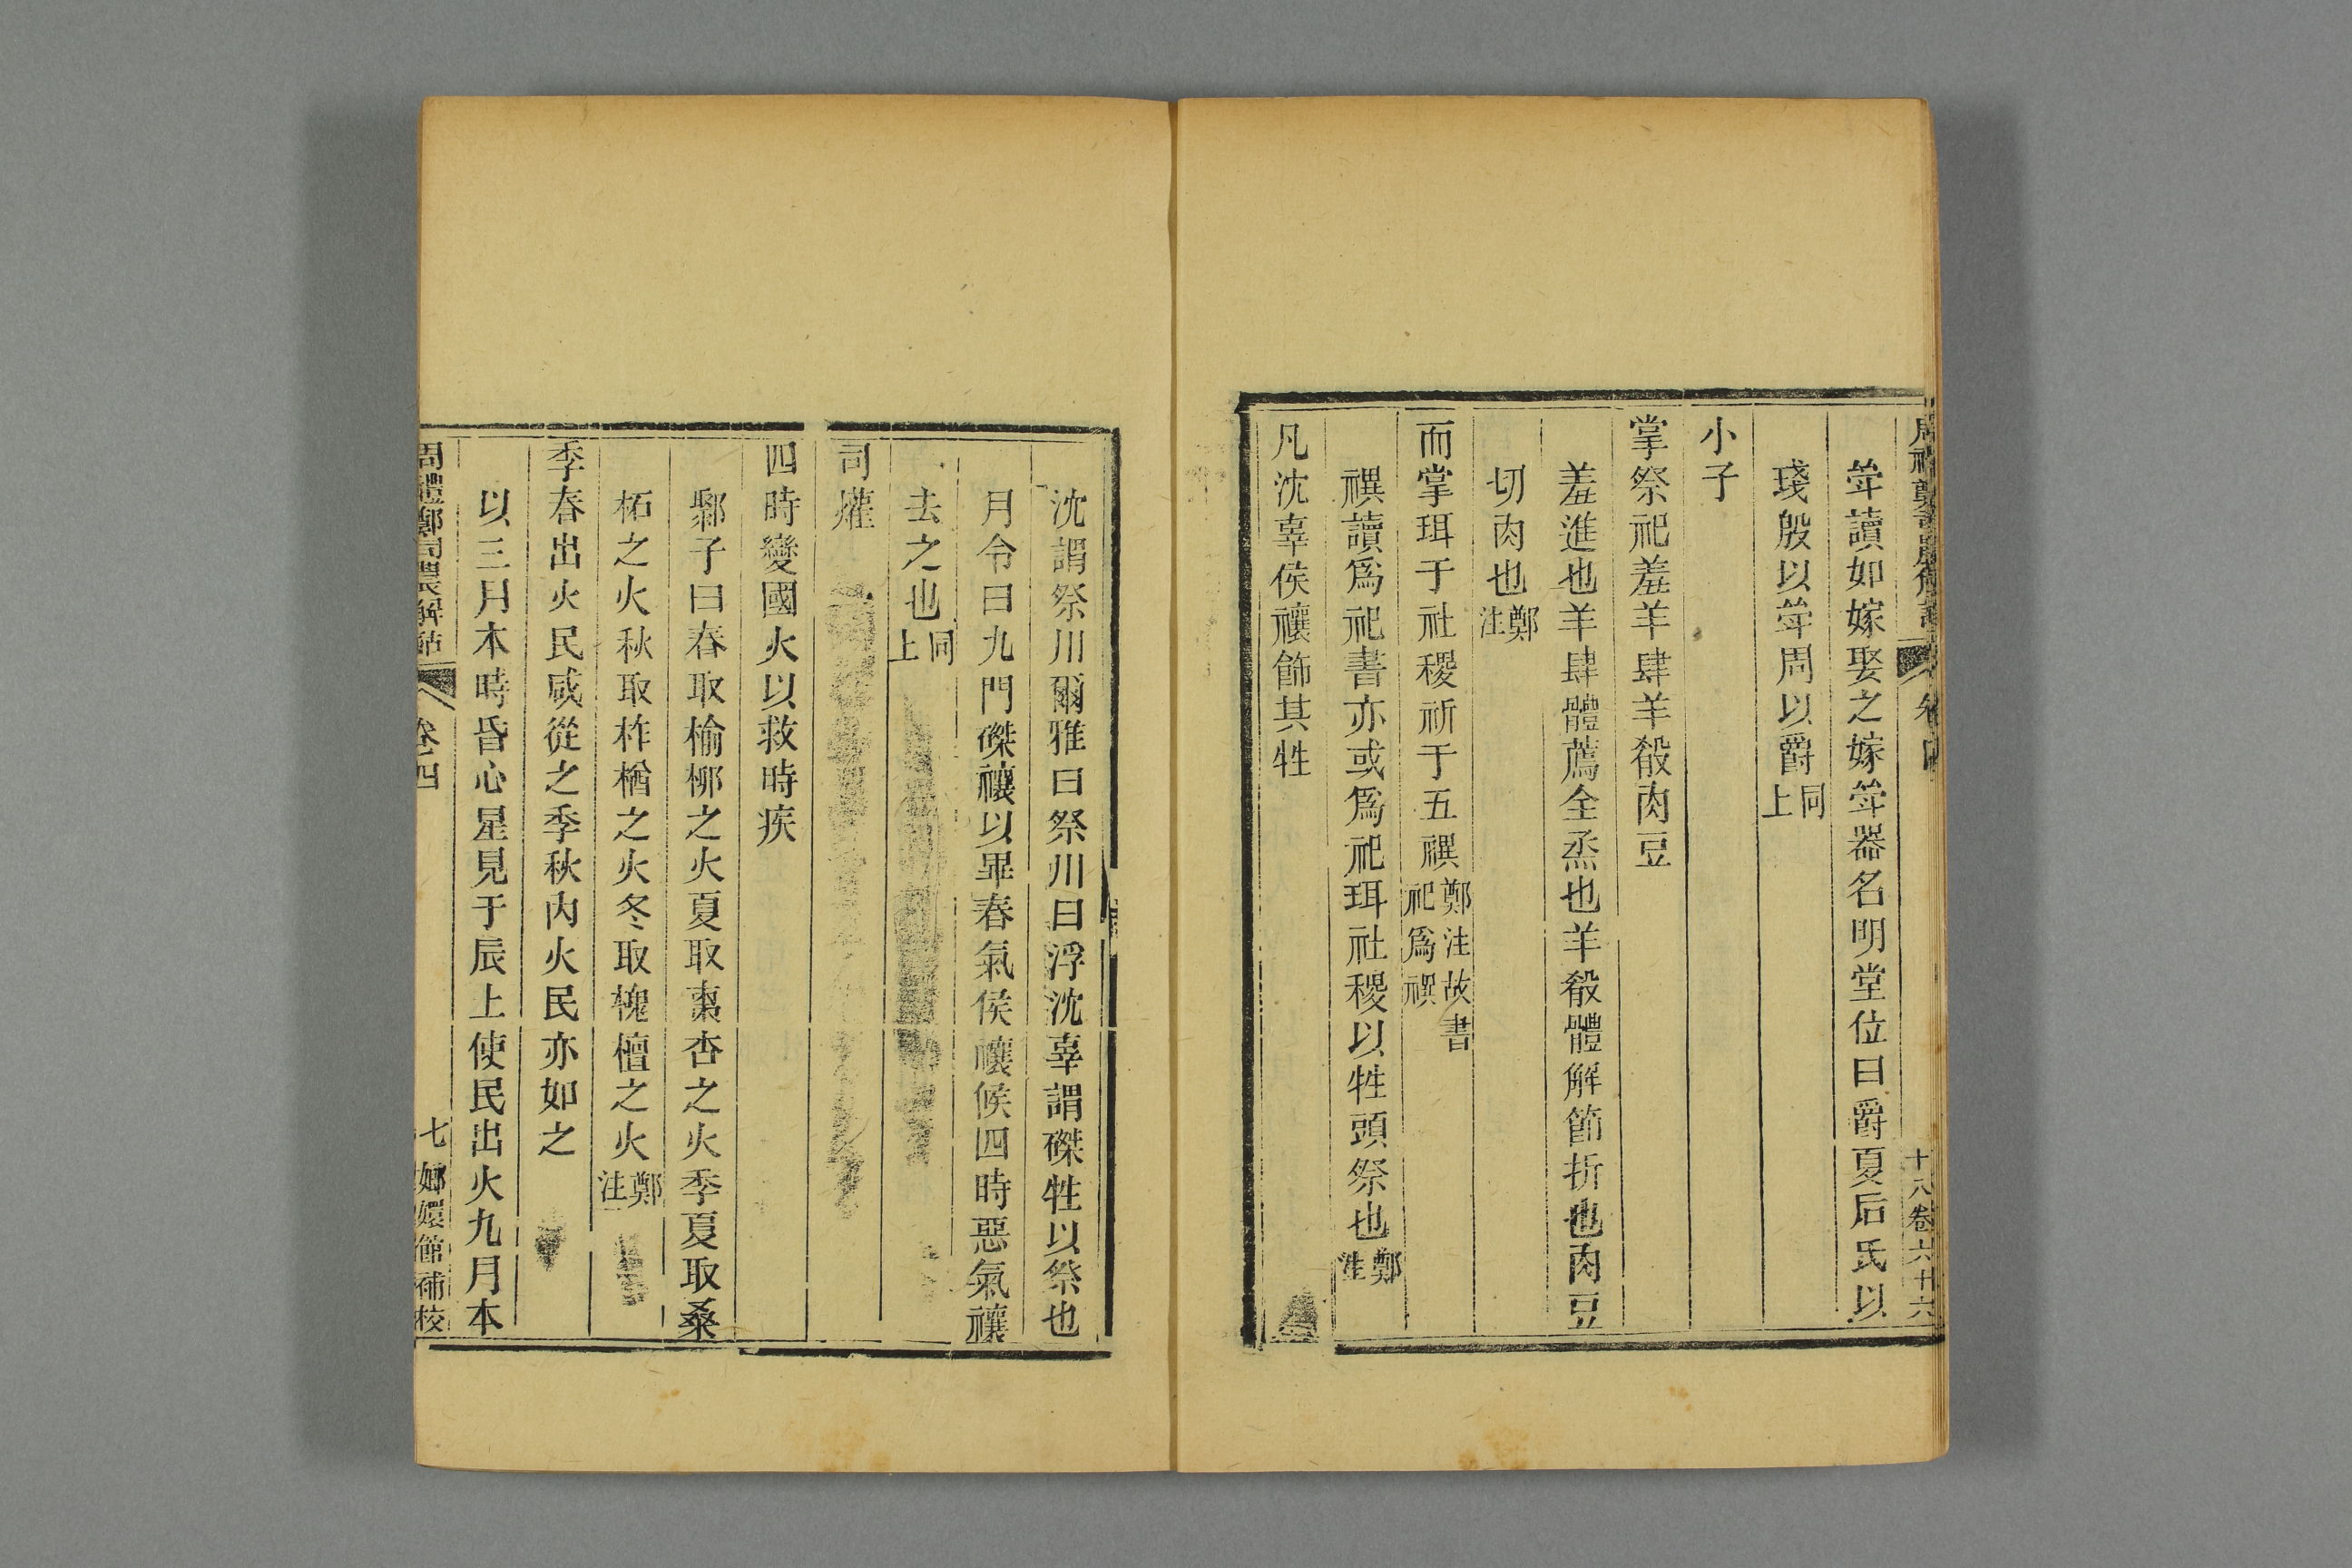 斚讀如嫁娶之嫁斚器名明堂位曰爵夏后氏以
琖殷以斚周以爵同上
小子
掌祭祀羞羊肆羊殽肉豆
羞進也羊肆體薦全烝也羊殽體解節折也肉豆
切肉也鄭注
而掌珥于社稷祈于五禩鄭注故書祀爲禩
禩讀爲祀書亦或爲祀珥社稷以牲頭祭也鄭注
凡沈辜侯禳飾其牲
沈謂祭川爾雅曰祭川曰浮沈辜謂磔牲以祭也
月令曰九門磔禳以畢春氣侯禳候四時惡氣禳
去之也同上
司爟
四時變國火以救時疾
鄹子曰春取榆柳之火夏取棗杏之火季夏取桑
柘之火秋取柞楢之火冬取槐檀之火鄭注
季春出火民咸從之季秋內火民亦如之
以三月本時昏心星見于辰上使民出火九月本
周禮鄭司農解詁 卷四 七 嫏嬛館補校